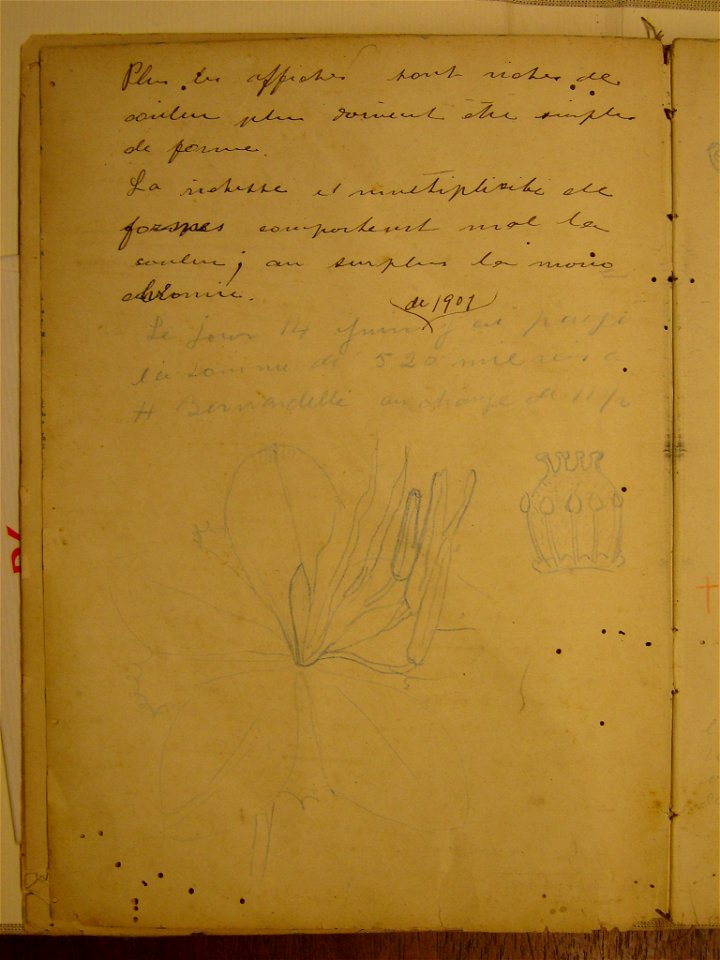 Plus les affiches sont riches de
couleur plus doivent être simples
de forme.
La richesse et multiplicité de
formes comportent mal la
couleur; au surplus la mono
chromie.
de 1901
Le jour 14 j'ai payé
la somme de 520 mil reis a
H Bernardelli au change de 11